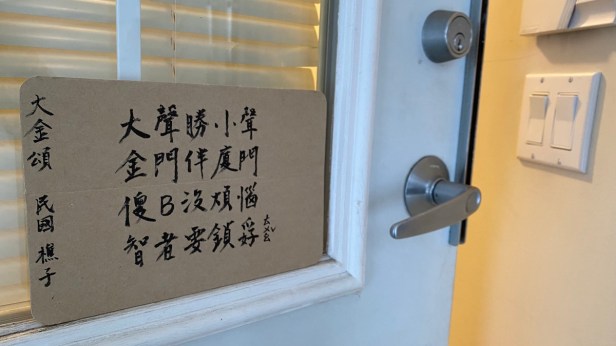 大金頌
民國 樵子
大聲勝小聲
金門伴廈門
傻B沒煩惱
智者要鎖